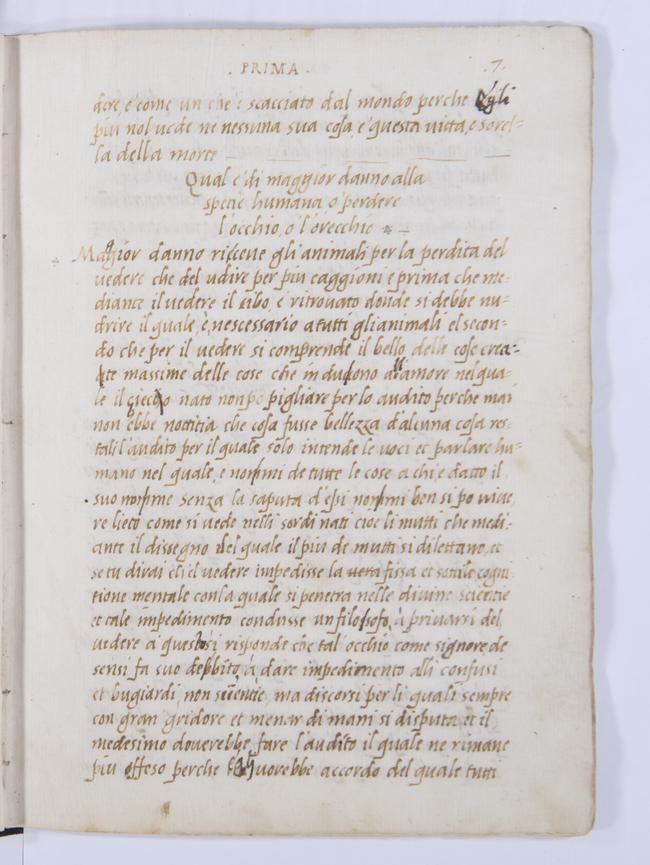 . PRIMA . .7.
dere, e come un che e scacciato dal mondo perche egli
piu nol uede ne nessuna sua cosa e questa uitta, e sorel=
la della morte
Qual e di maggior danno alla
specie humana, o perdere
l'occhio, o l'orecchio
Magior danno riceue gli animali per la perdita del
uedere che del udire per piu caggioni e prima che me=
diante il uedere il cibo, e ritrouato donde si debbe nu=
drire il quale, e, nescessario a tutti gli animali el secon=
do che per il uedere si comprende il bello delle cose crea=
te massime delle cose che inducono all'amore nel qua=
le il ciecho nato non po pigliare per lo audito perche mai
non ebbe nottitia che cosa fusse bellezza d'alcuna cosa res=
tali l'audito per il quale solo intende le uoci et parlare hu=
mano nel quale, e nommi de tutte le cose a chi e datto il.
suo nomme senza la saputa d'essi nommi ben si po uiue,
re lieto come si uede nelli sordi nati cioe li mutti che medi=
ante il dissegno del quale il piu de mutti si dilettano, et
se tu dirai ch'el uedere impedisse la uera fissa et sottile cogni
tione mentale con la quale si penetra nelle diuine scientie
et tale impedimento condusse un filosofo, à priuarsi del
uedere a questo si risponde che tal occhio come signore de
sensi fa suo debbito, à dare impedimento alli confusi
et bugiardi, non scientie, ma discorsi per li quali sempre
con gran gridore et menar di mani si disputa et il
medesimo douerebbe, fare l'audito il quale ne rimane
piu offeso perche uorebbe accordo del quale tutti